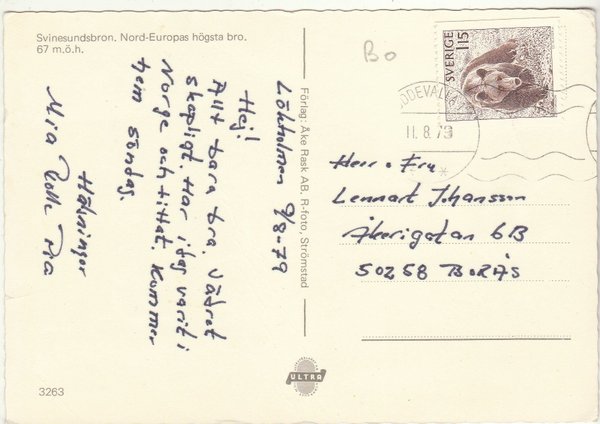 Svinesundsbron. Nord-Europas högsta bro.
67 m.ö.h.
Bo
SVERIGE 115
UDDEVALLA
11.8.79
Lökholmen 9/8-79
Hej!
Allt bara bra. Vädret
skapligt. Har idag varit i
Norge och tittat. Kommer
hem söndag.
Hälsningar
Mia
Förlag: Åke Rask AB, R-foto, Strömstad
Herr o Fru
Lennart Johansson
Åkerigatan 6B
50258 BORÅS
ULTRA
3263